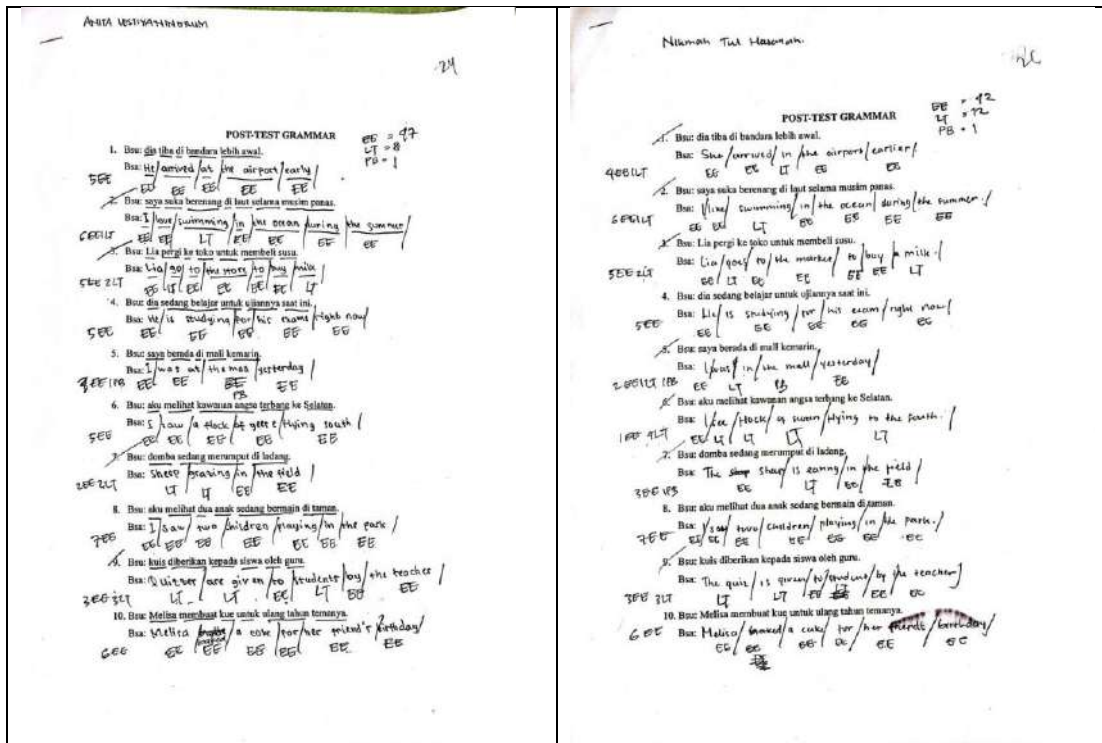 ANITA
24
POST-TEST GRAMMAR
EE = 47
LT = 8
PB = 1
1. Bsu: dia tiba di bandara lebih awal.
Bsa: He/arrived/at/the airport/early/
5EE
EE EE EE EE EE
2. Bsu: saya suka berenang di laut selama musim panas.
Bsa: I/love/swimming/in/the ocean/during/the summer/
6EE1LT
EE EE LT EE EE EE EE
3. Bsu: Lia pergi ke toko untuk membeli susu.
Bsa: Lia/go/to/the store/to/buy/milk/
5EE 2LT
EE LT EE EE EE EE LT
4. Bsu: dia sedang belajar untuk ujiannya saat ini.
Bsa: He/is studying/for/his exams/right now/
5EE
EE EE EE EE EE
5. Bsu: saya berada di mall kemarin.
Bsa: I/was at/the mall/yesterday/
EE EE EE EE
PB
6. Bsu: aku melihat kawanan angsa terbang ke Selatan.
Bsa: I/saw/a flock/of geese/flying south/
5EE
EE EE EE EE EE
7. Bsu: domba sedang merumput di ladang.
Bsa: Sheep/grazing/in/the field/
2EE 2LT
LT LT EE EE
8. Bsu: aku melihat dua anak sedang bermain di taman.
Bsa: I/saw/two/children/playing/in/the park./
7EE
EE EE EE EE EE EE EE
9. Bsu: kuis diberikan kepada siswa oleh guru.
Bsa: Quizzes/are given/to/students/by/the teacher/
3EE 3LT
LT LT EE LT EE EE
10. Bsu: Melisa membuat kue untuk ulang tahun temanya.
Bsa: Melisa/a cake/for/her friend's/birthday/
6EE
EE EE EE EE EE EE
Nikmah Tul Hasanah.
POST-TEST GRAMMAR
EE = 42
LT = 12
PB = 1
1. Bsu: dia tiba di bandara lebih awal.
Bsa: She/arrived/in/the airport/earlier/
4EE1LT
EE EE LT EE EE
2. Bsu: saya suka berenang di laut selama musim panas.
Bsa: I/like/swimming/in/the ocean/during/the summer./
6EE1LT
EE EE LT EE EE EE EE
3. Bsu: Lia pergi ke toko untuk membeli susu.
Bsa: Lia/goes/to/the market/to/buy/a milk./
5EE 2LT
EE LT EE EE EE EE LT
4. Bsu: dia sedang belajar untuk ujiannya saat ini.
Bsa: is studying/for/his exam/right now/
5EE
EE EE EE EE EE
5. Bsu: saya berada di mall kemarin.
Bsa: I/was/in/the mall/yesterday/
2EE1LT 1PB
EE LT PB EE
6. Bsu: aku melihat kawanan angsa terbang ke Selatan.
Bsa: I/see/flock/of swan/flying to the south./
1EE 4LT
EE LT LT LT LT
7. Bsu: domba sedang merumput di ladang.
Bsa: The sheep/is eating/in/the field/
3EE 1PB
EE LT EE EE
8. Bsu: aku melihat dua anak sedang bermain di taman.
Bsa: I/saw/two/children/playing/in/the park./
7EE
EE EE EE EE EE EE EE
9. Bsu: kuis diberikan kepada siswa oleh guru.
Bsa: The quiz/is given/to/student/by/the teacher/
3EE 3LT
LT LT EE LT EE EE
10. Bsu: Melisa membuat kue untuk ulang tahun temanya.
Bsa: Melisa/baked/a cake/for/her/birthday/
6EE
EE EE EE EE EE EE